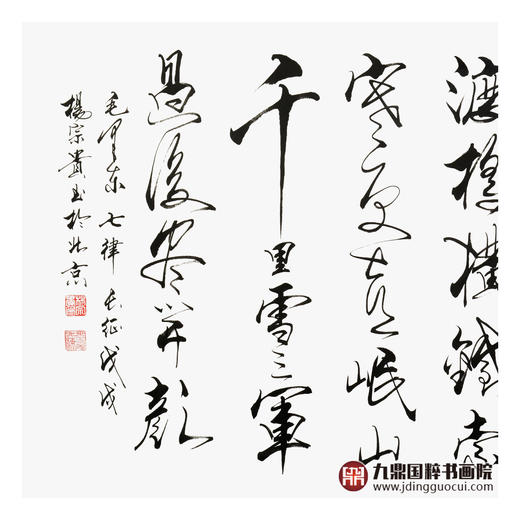 渡橋橫鐵索
寒更喜岷山
千里雪三軍
過後盡開顏
毛澤東七律長征戊戌
楊宗貴書於北京
九鼎国粹书画院
www.jdingguocui.com